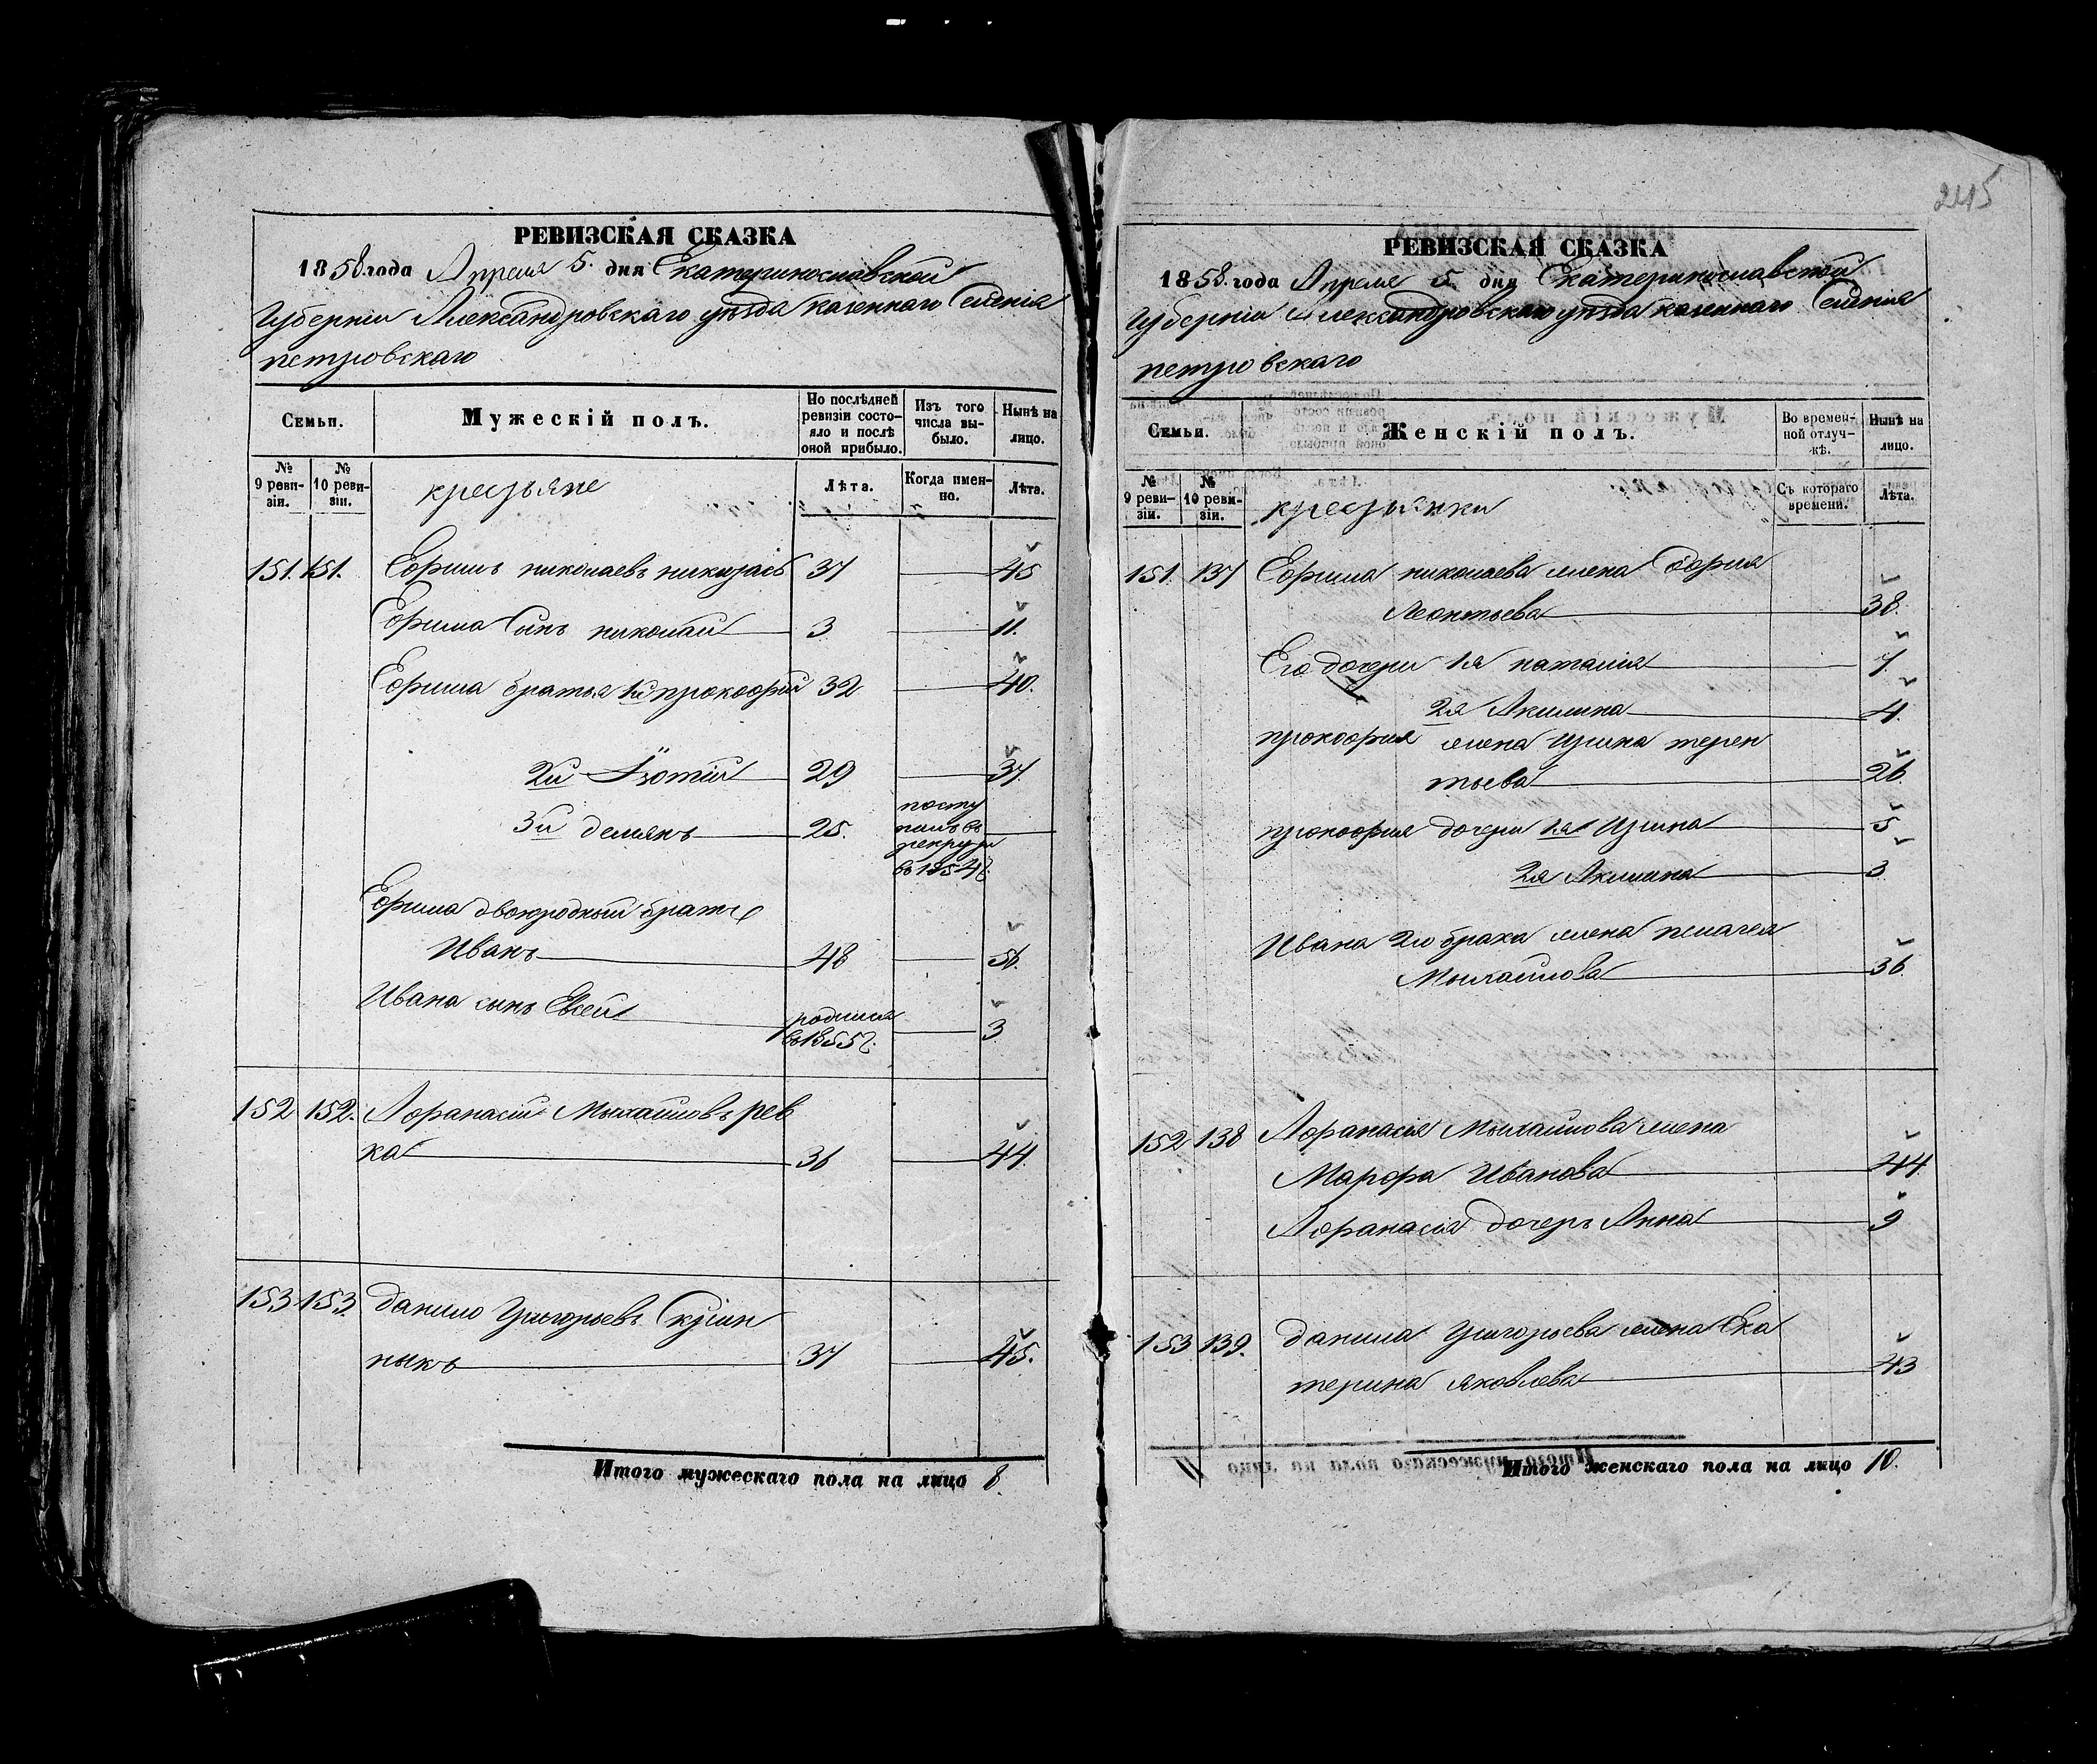 245
РЕВИЗСКАЯ СКАЗКА
1858 года Апреля 5. дня Екатеринославской
Губерніи Александровскаго уѣзда казеннаго Селенія
петровскаго
Семьи.
Мужескій полъ.
По послѣдней ревизіи состояло и послѣ оной прибыло.
Изъ того числа выбыло.
Нынѣ на лицо.
№ 9 ревизіи.
№ 10 ревизіи.
крестьяне
Лѣта.
Когда именно.
Лѣта.
151. 151. Ефимъ николаевъ 37 45
Ефима Сынъ николай 3 11.
Ефима братья 1й прокофий 32 40.
2й Изотій 29 37.
3й демянъ 25. посту
пилъ въ
рекруты
въ 1854г.
Ефима двоюродный братъ
Иванъ 48 56.
Ивана сынъ Евсей родился 3
въ 1855г.
152 152. Афанасій Михайловъ рев
ка 36 44.
153 153. данило Григорьевъ Скрип
ныкъ 37 45.
Итого мужескаго пола на лицо 8.
РЕВИЗСКАЯ СКАЗКА
1858. года Апреля 5. дня Екатеринославской
Губерніи Александровскаго уѣзда казеннаго Селенія
петровскаго
Семьи.
Женскій полъ.
Во временной отлучкѣ.
Нынѣ на лицо.
№ 9 ревизіи.
№ 10 ревизіи.
крестьянки
Съ котораго времени.
Лѣта.
151. 137 Ефима николаева жена
Леонтьева 38.
Его дочери 1я наталия 7.
2я Акилина 4.
прокофия жена Ирина терен
тьева 26.
прокофия дочери 1я Ирина 5
2я Акилина 3
Ивана 2го брака жена пелагея
Михайлова 36.
152 138 Афанасія Михайлова жена
Марфа Иванова 44
Афанасія дочерь Анна 9
153 139. данила Григорьева жена Ека
терина яковлева 43
Итого женскаго пола на лицо 10.